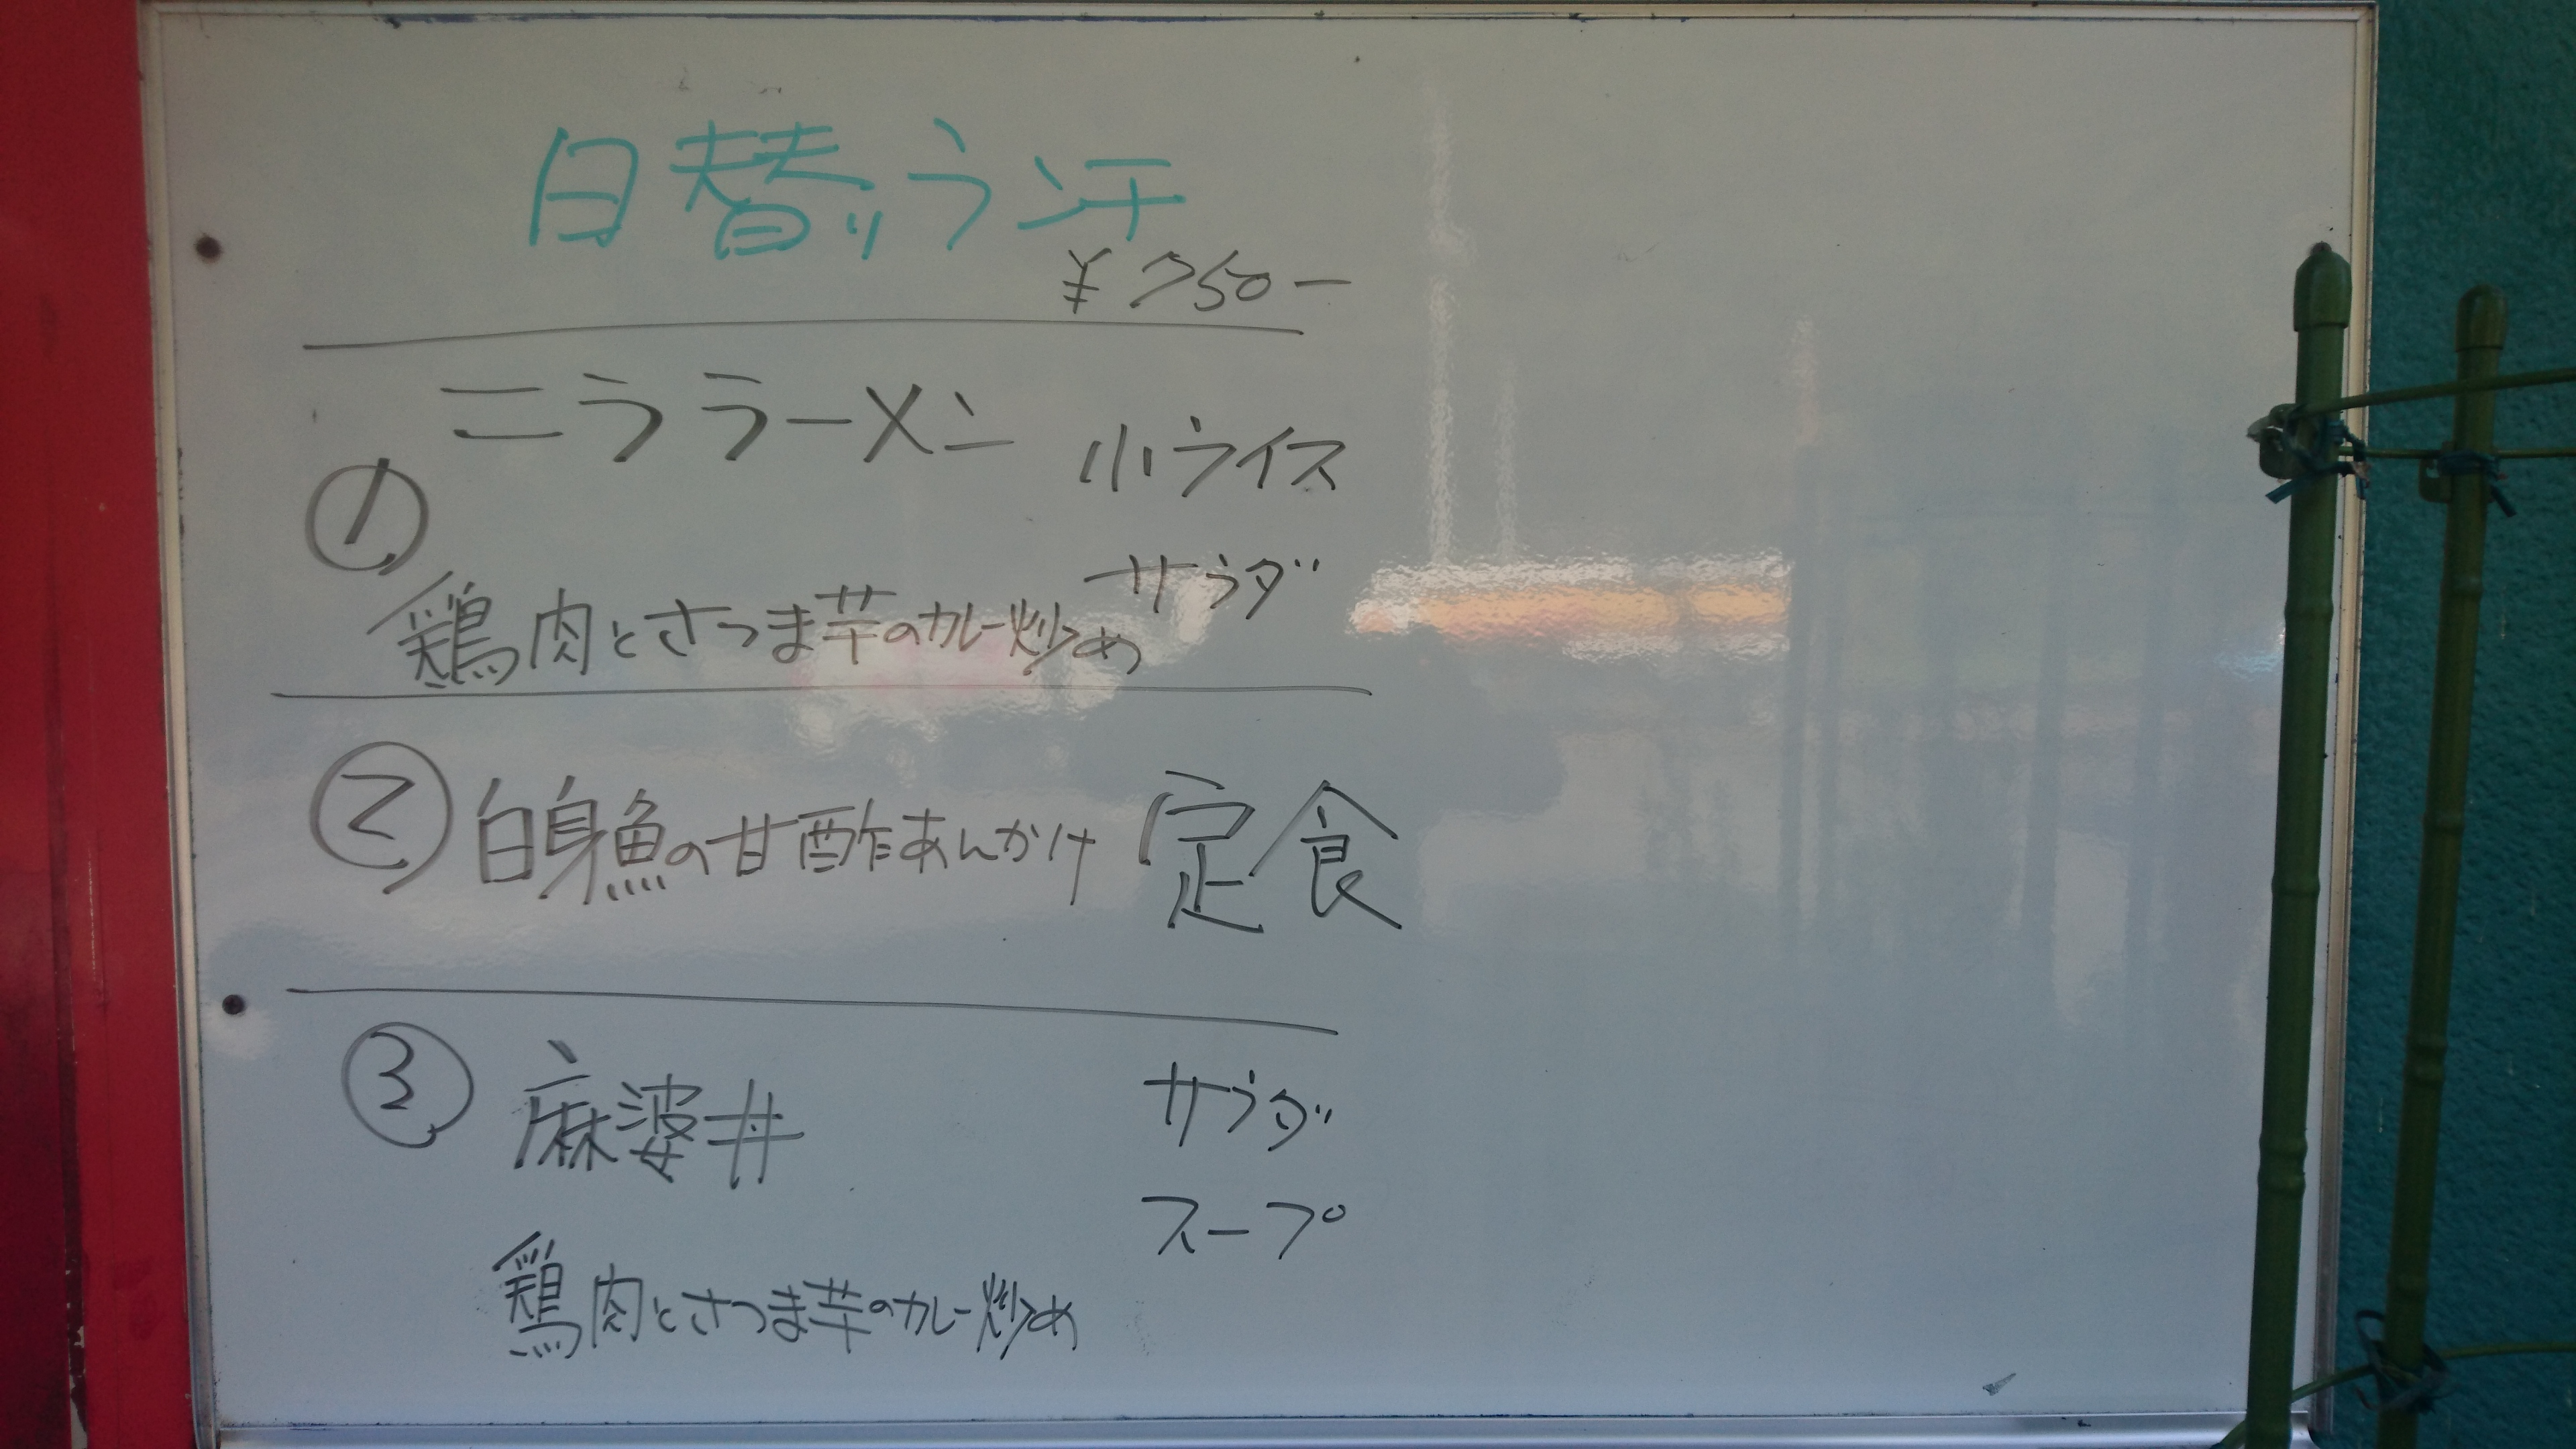 日替りランチ
¥750-
① ニララーメン 小ライス
サラダ
鶏肉とさつま芋のカレー炒め
② 白身魚の甘酢あんかけ 定食
③ 麻婆丼 サラダ
スープ
鶏肉とさつま芋のカレー炒め